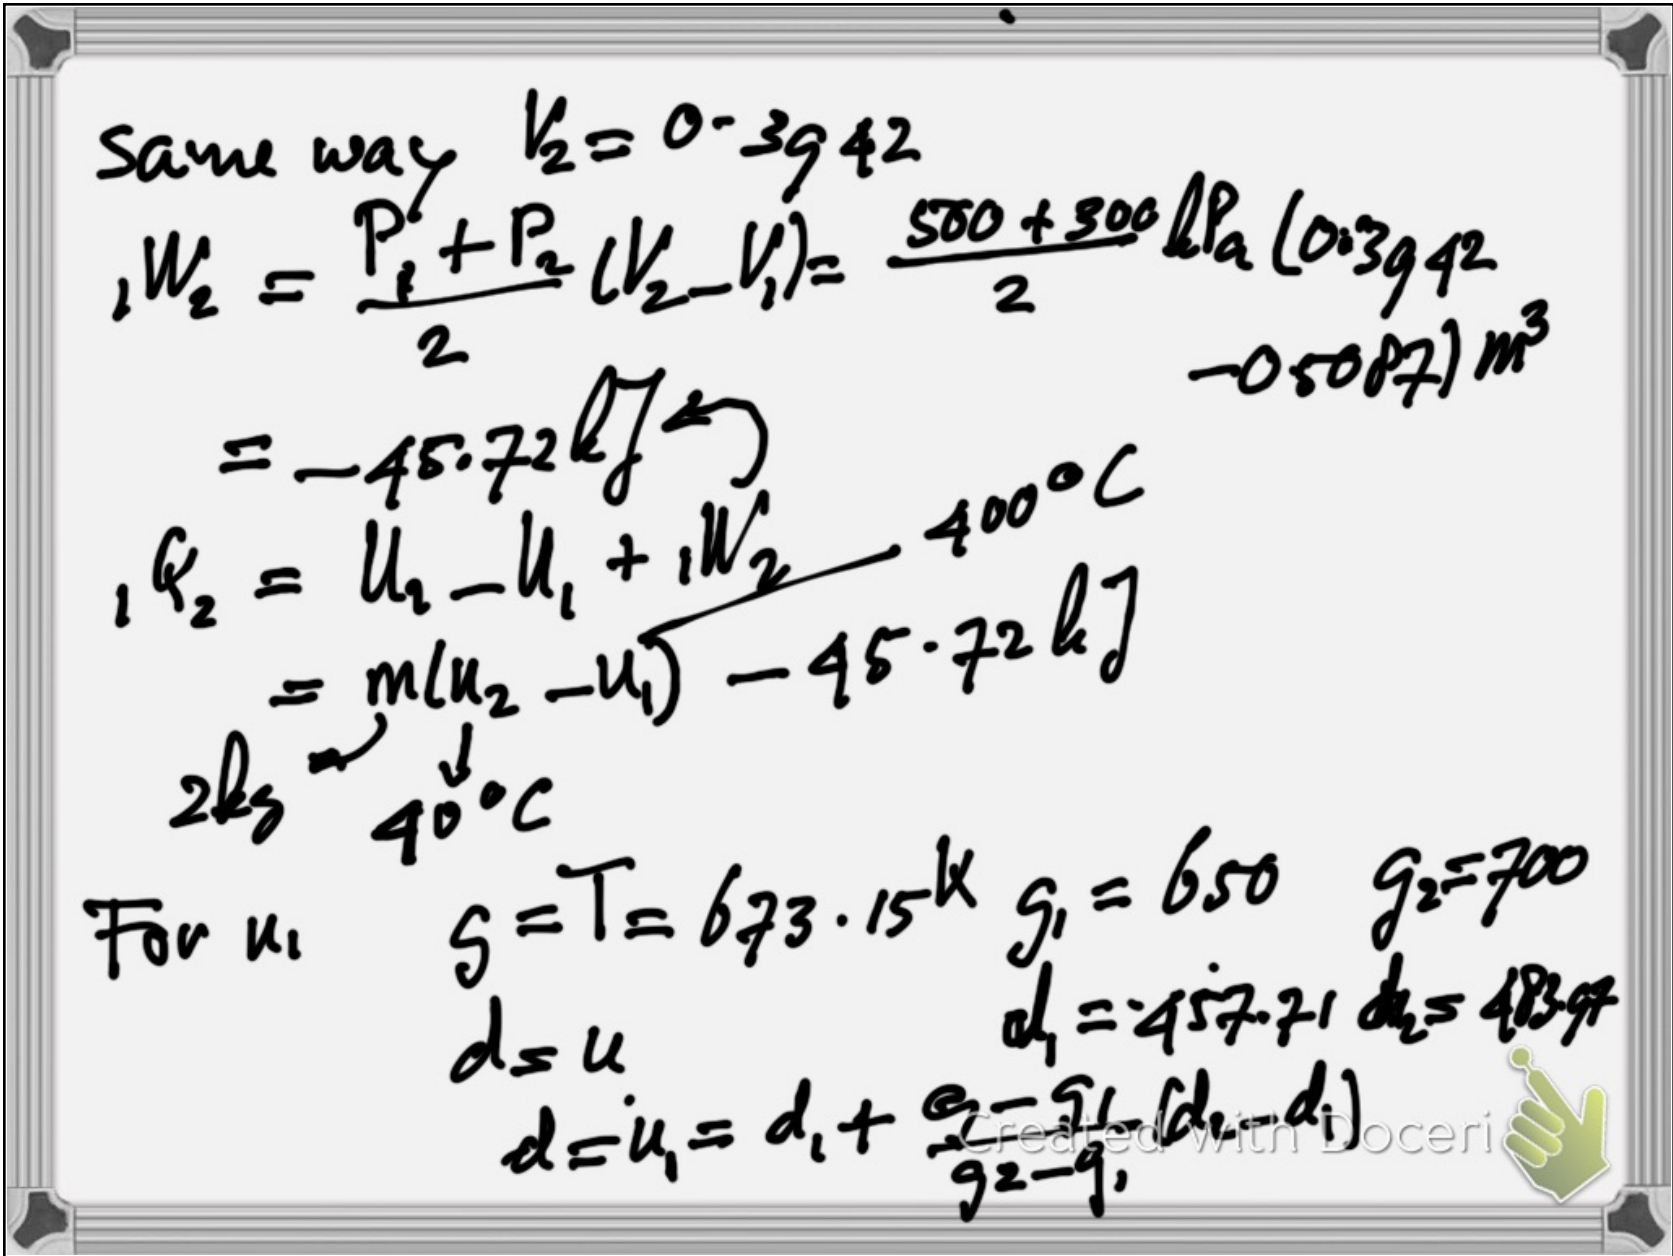 same way V₂ = 0.3942
₁W₂ = (P₁ + P₂)/2 (V₂ - V₁) = (500 + 300)/2 kPa (0.3942
-0.5087) m³
= -45.72 kJ
400°C
₁Q₂ = U₂ - U₁ + ₁W₂
= m(u₂ - u₁) - 45.72 kJ
2kg 40°C
For u₁ g = T = 673.15 K g₁ = 650 g₂ = 700
d = u d₁ = 457.71 d₂ = 483.97
d = u₁ = d₁ + (g - g₁)/(g₂ - g₁) (d₂ - d₁)
Created with Doceri